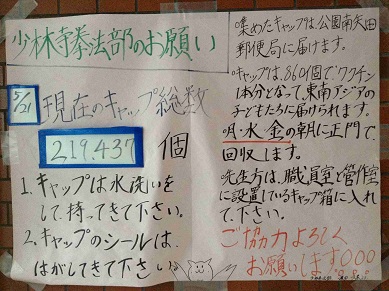 少林寺拳法部のお願い
5/21 現在のキャップ総数
219,437 個
1. キャップは水洗いを
して、持ってきて下さい。
2. キャップのシールは、
はがしてきて下さい。
・集めたキャップは、公園南矢田
郵便局に届けます。
・キャップは、860個でワクチン
1本分となって、東南アジアの
子どもたちに届けられます。
・月・水・金の朝に正門で、
回収します。
・先生方は、職員室と管作室
に設置しているキャップ箱に入れ
て、下さい。
ご協力よろしく
お願いします○○○